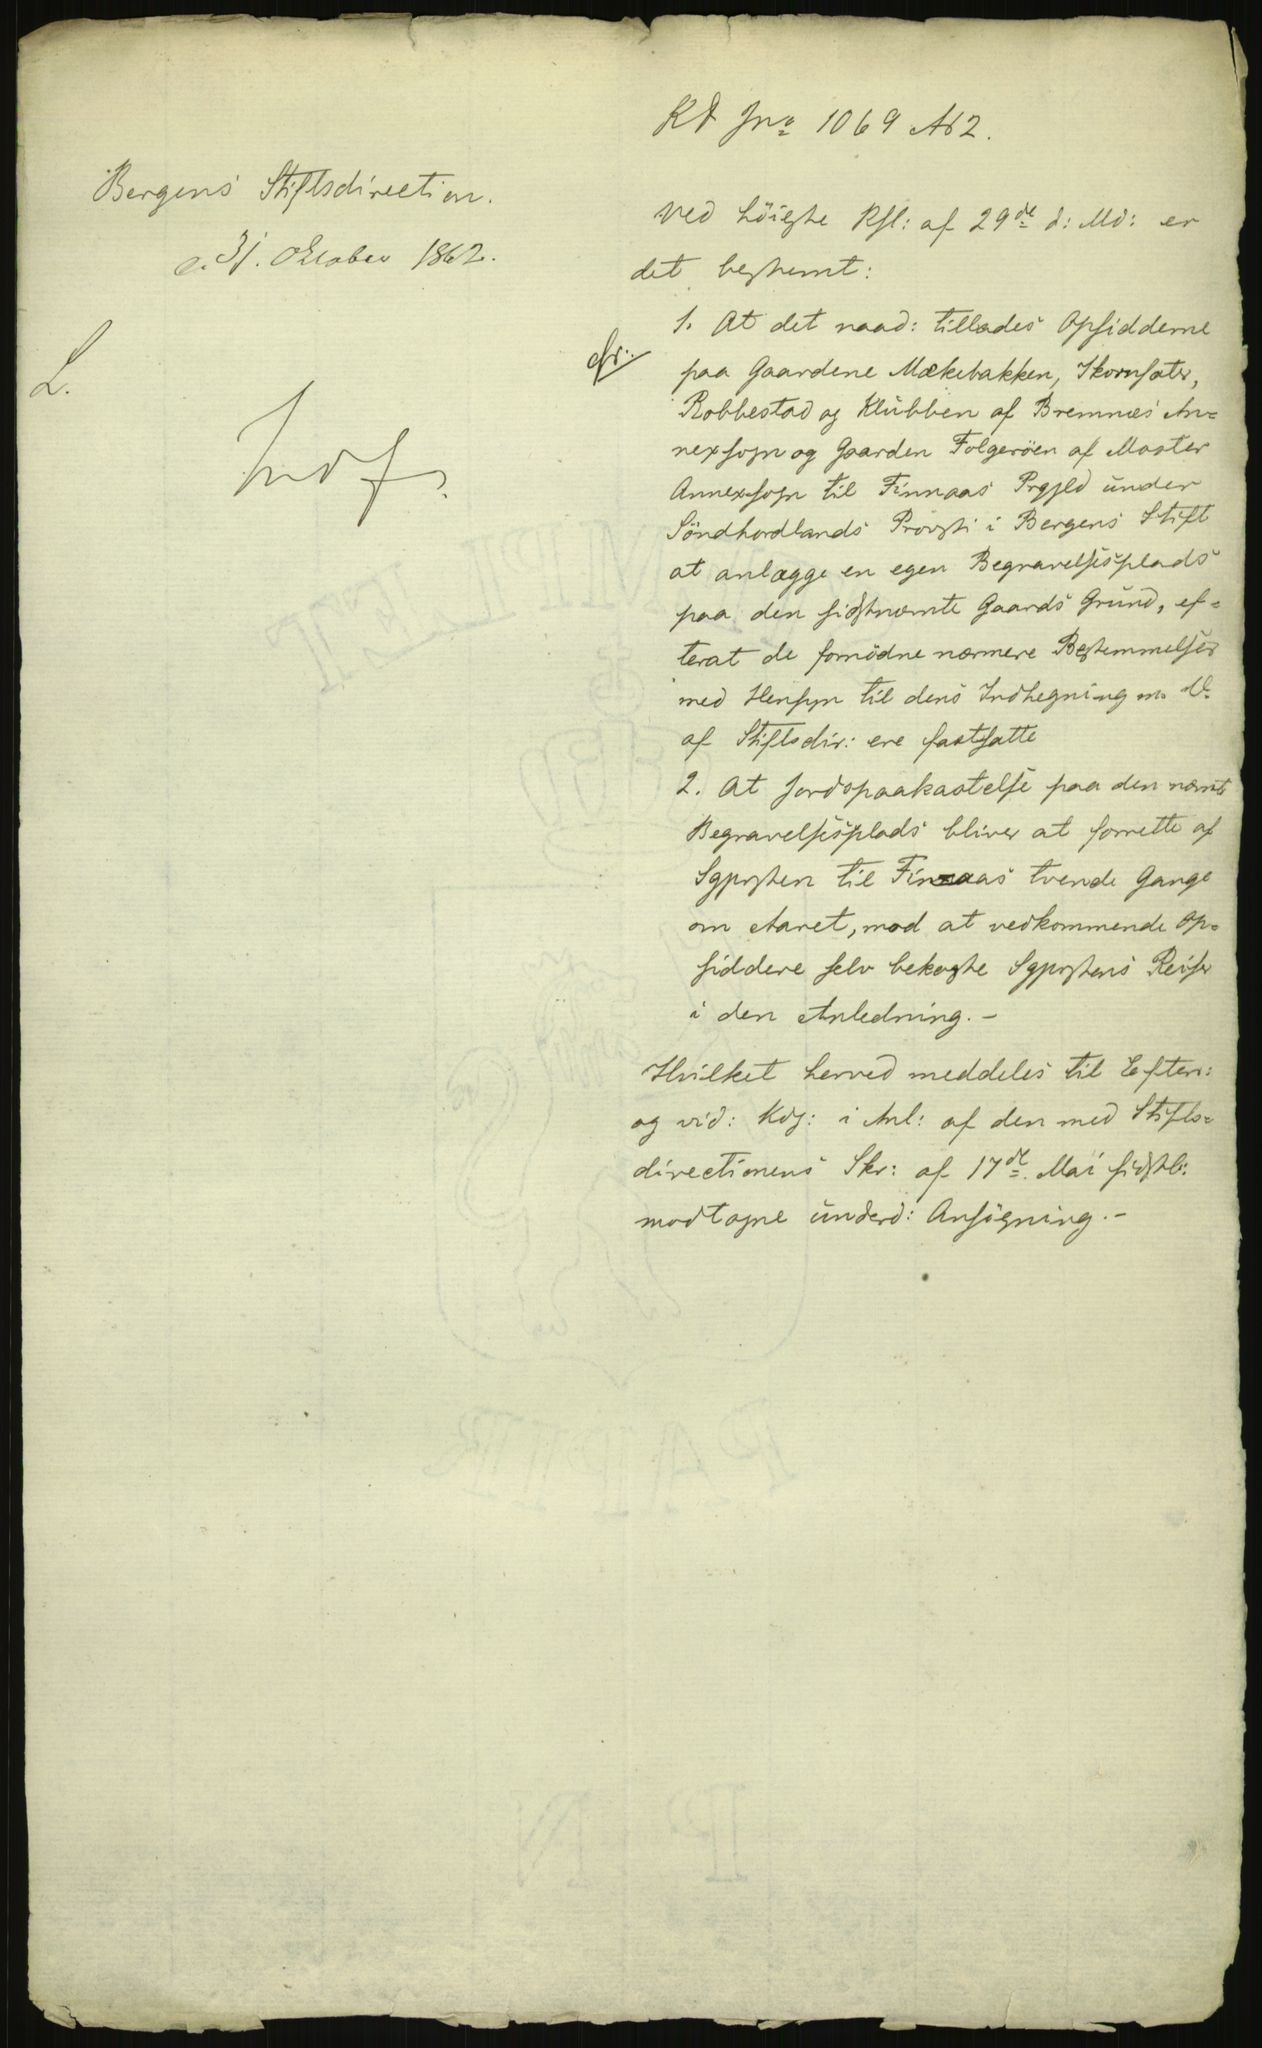 KD Jn<sup>o</sup> 1069 A62.
Bergens Stiftsdirection.
d. 31. October 1862.
L.
Ved höieste Rsl: af 29<sup>de</sup> d: Md: er
det bestemt:
cfr.
1. At det naad: tillades Opsidderne
paa Gaardene Mækebakken, Skornsæter,
Robbestad og Klubben af Bremnæs An-
nexsogn og Gaarden Folgeröen af Moster
Annexsogn til Finnaas Prgjld under
Söndhordlands Provsti i Bergens Stift
at anlægge en egen Begravelsesplads
paa den sidstnævnte Gaards Grund, ef-
terat de fornödne nærmere Bestemmelser
med Hensyn til dens Indhegning m. V.
af Stiftsdir: ere fastsatte
2. At Jordspaakastelse paa den nævnte
Begravelsesplads bliver at forrette af
Sgprsten til Finnaas tvende Gange
om Aaret, mod at vedkommende Op-
siddere selv bekoste Sgprstens Reiser
i den Anledning.-
Hvilket herved meddeles til Efterr:
og vid: Kdg: i Anl: af den med Stifts-
directionens Skr: af 17<sup>de</sup> Mai sidstl:
modtagne underd: Ansögning.-